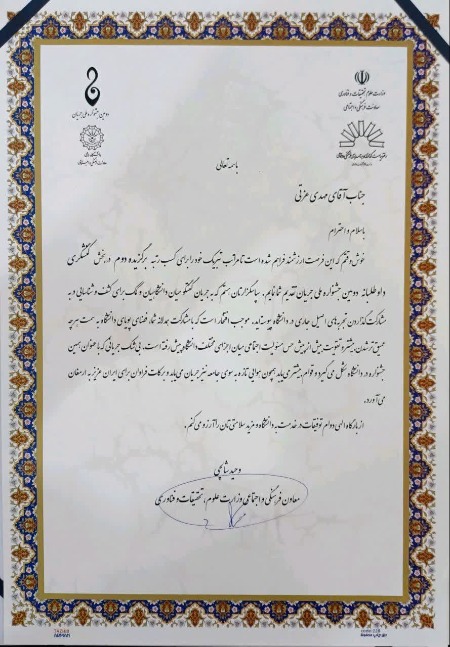 دومین جشنواره ملی جریان
وزارت علوم، تحقیقات و فناوری
معاونت فرهنگی و اجتماعی
باسمه تعالی
جناب آقای مهدی عزتی
با سلام و احترام
خوش‌وقتم که این فرصت ارزشمند فراهم شده است تا مراتب تبریک خود را برای کسب رتبه برگزیده دوم در بخش کنشگری
داوطلبانه دومین جشنواره ملی جریان تقدیم شما نمایم. سپاسگزارتان هستم که به جریان گفتگو میان دانشگاهیان و کمک برای کشف و شناسایی و به
مشارکت گذاردن تجربه‌های اصیل جاری در دانشگاه پیوسته‌اید. موجب افتخار است که با مشارکت همدلانه شما، فضای پویای دانشگاه به سمت هرچه
عمیق‌تر شدن، بیشتر و تقویت بیش از پیش حس مسئولیت اجتماعی میان اجزای مختلف دانشگاه پیش رفته است. بی‌شک جریانی که با عنوان همین
جشنواره در دانشگاه شکل می‌گیرد و قوام بیشتری یابد همچون هوایی تازه به سوی جامعه نیز جریان می‌یابد و برکات فراوان برای ایران عزیز به ارمغان
می‌آورد.
از بارگاه الهی دوام توفیقات در خدمت به دانشگاه و مزید سلامتی‌تان را آرزو می‌کنم.
وحید شالچی
معاون فرهنگی و اجتماعی وزارت علوم، تحقیقات و فناوری